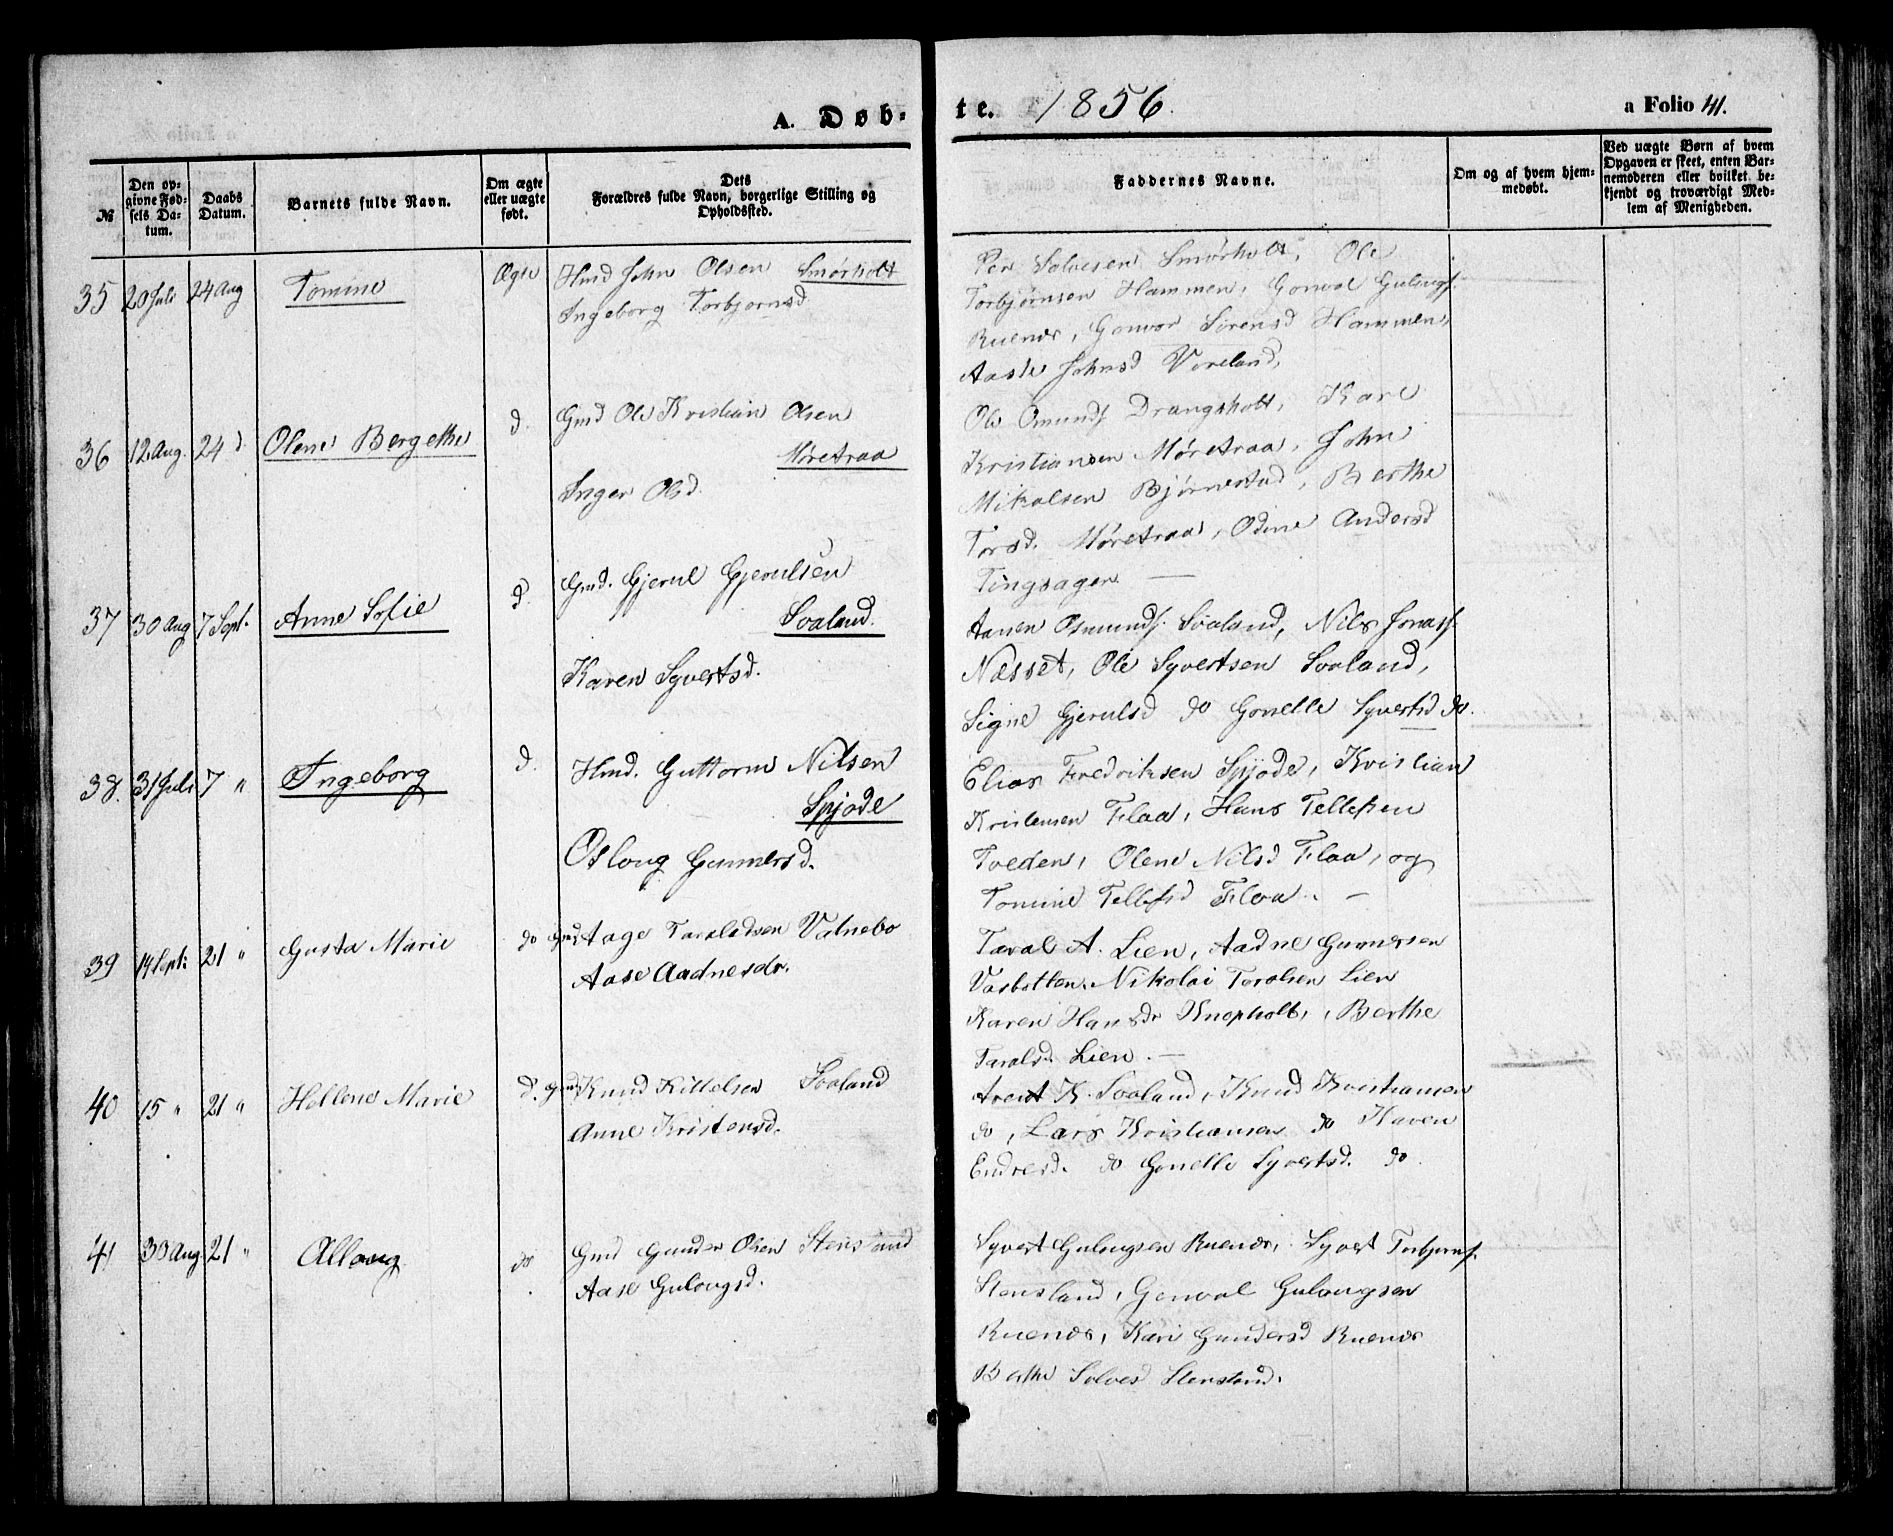 A. Døb-
te. 1856.
a Folio 41.
№
Den op-
givne Fød-
sels Da-
tum.
Daabs
Datum.
Barnets fulde Navn.
Om ægte
eller uægte
født.
Dets
Forældres fulde Navn, borgerlige Stilling og
Opholdssted.
Faddernes Navne.
Om og af hvem hjem-
medøbt.
Ved uægte Børn af hvem
Opgaven er skeet, enten Bar-
nemoderen eller hvilket be-
kjendt og troværdigt Med-
lem af Menigheden.
35 20 Juli 24 Aug Tomine Ægte Hmd John Olsen Smørholt
Ingeborg Torbjørnsd
Per Solvesen Smørholt, Ole
Torbjørnsen Hammen, Gonval Gulougs.
Ruenes, Gonvor Sørensd Hammen,
Aaste Johnsd Voreland,
36 12 Aug. 24 d Olene Bergethe d. Gmd Ole Kristian Olsen
Møretraa
Inger Olsd.
Ole Omunds. Drangsholt, Kare
Kristiansen Møretraa, John
Mikalsen Bjørnestad, Berthe
Torsd. Møretraa, Odine Andersd
Tingsager —
37 30 Aug 7 Sept. Anne Sofie d. Gmd. Gjerul Gjerulsen
Soaland.
Karen Syvertsd.
Aanen Osmunds. Soaland, Nils Jonass.
Nesset, Ole Syvertsen Soaland,
Signe Gjerulsd do Gonelle Syvertsd do.
38. 31 Juli 7 " Ingeborg d. Hmd. Guttorm Nilsen
Spjode
Osloug Gunnersd.
Elias Fredriksen Spjode, Kristian
Kristensen Flaa, Hans Tellefsen
Tveden, Olene Nilsd Flaa, og
Tomine Tellefsd Flaa. —
39 14 Sept: 21 " Gusta Marie do Gmd Aage Taraldsen Vatnebo
Aase Aadnesdr.
Taral A. Lien, Aadne Gunnersen
Vasbotten. Nikolai Torolsen Lien
Karen Hansdr Knapholt, Berthe
Taralsd. Lien. —
40 15 " 21 " Hellene Marie d. Gmd Knud Kittelsen Soaland
Anne Kristensd.
Arent K. Soaland, Knud Kristiansen
do, Lars Kristiansen do Haven
Endresd. do Gonelle Syvertsd. do.
41 30 Aug. 21 " Alloug do Gmd Gunder Olsen Stensland
Aase Gulougsd.
Syvert Gulougsen Ruenes, Syvert Torbjørns.
Stensland, Gonval Gulougsen
Ruenes, Kari Gundersd Ruenes
Berthe Solves Stensland.